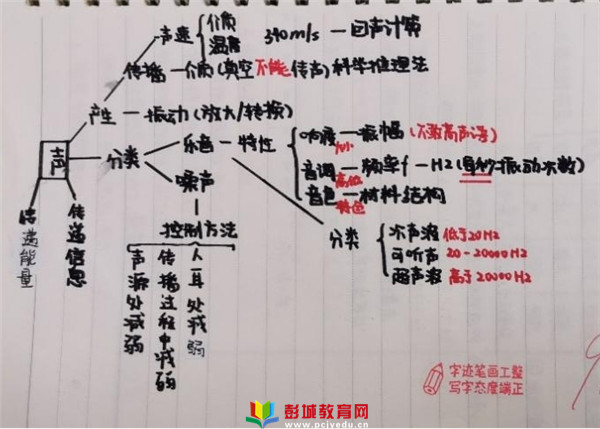 声速 介质 温度 340m/s — 回声计算
传播 — 介质(真空不能传声) 科学推理法
产生 — 振动(放大/转换)
声
分类
乐音 — 特性
响度 — 振幅
大小
音调 — 频率f — Hz(每秒振动次数)
高低
音色 — 材料结构
特色
噪声
控制方法
声源处减弱
传播过程中减弱
人耳处减弱
分类
次声波 低于20Hz
可听声 20-20000Hz
超声波 高于20000Hz
传递能量
传递信息
字迹笔画工整
写字态度端正
彭城教育网
www.pcjyedu.cn